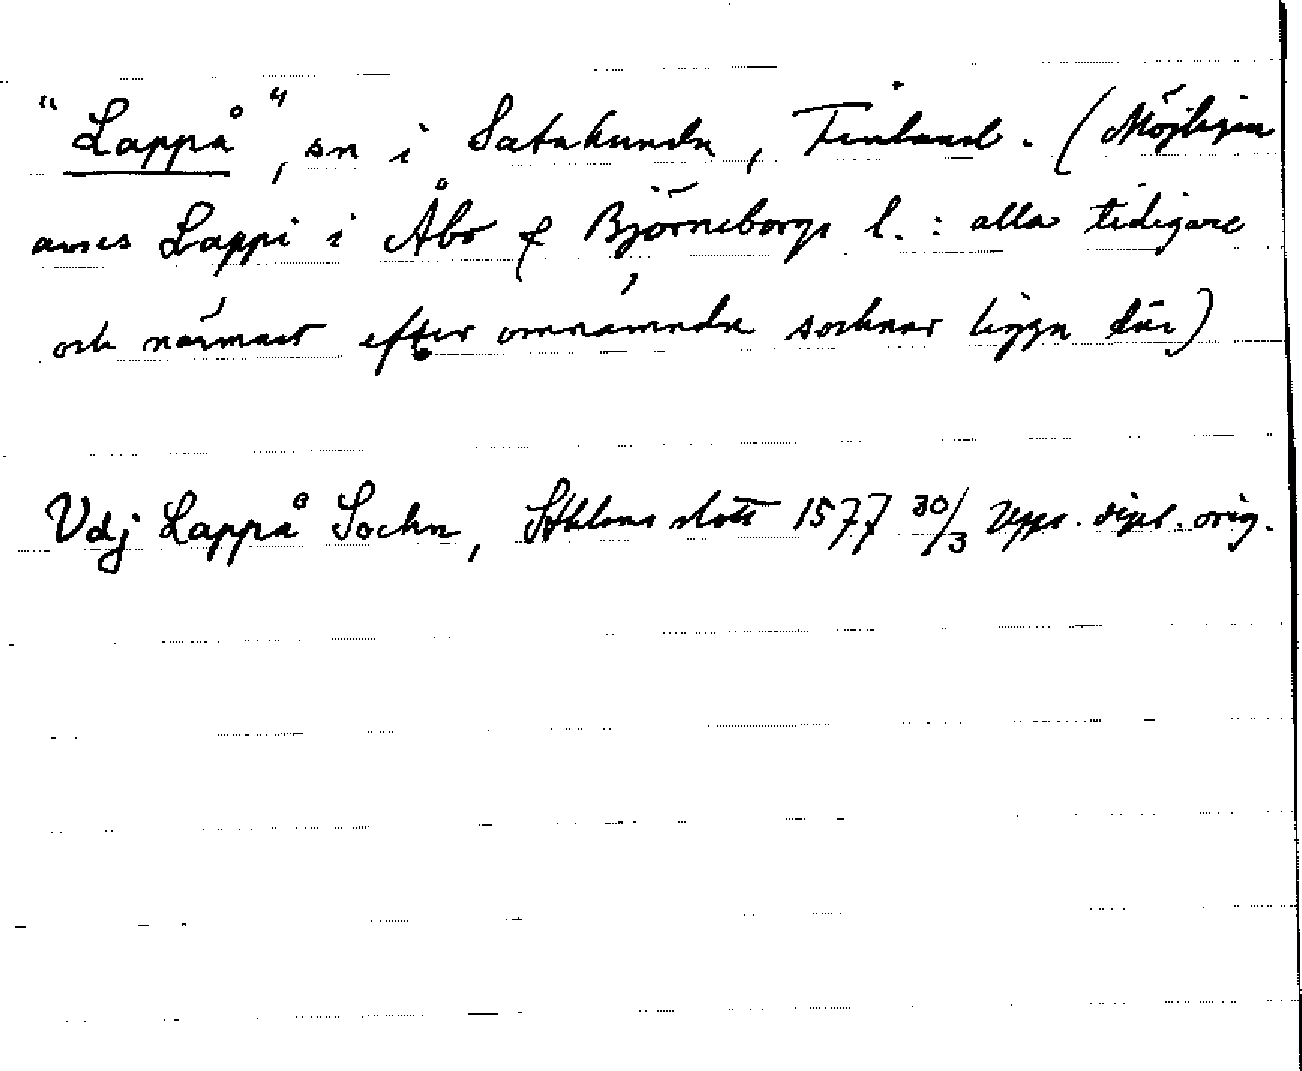 "Lappå", sn i Satakunda, Finland. (Möjligen
anses Lappi i Åbo & Björneborgs l.: alla tidigare
och närmast efter omnämnda socknar ligga där)
Vdj Lappå Sochn, Sthlms slott 1577 30/3 Upps. dipl. orig.